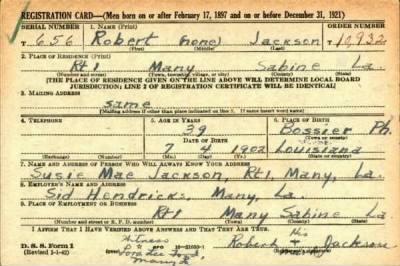 REGISTRATION CARD—(Men born on or after February 17, 1897 and on or before December 31, 1921)
SERIAL NUMBER 1. NAME (Print) ORDER NUMBER
T 656 Robert (none) Jackson T 10,932
(First) (Middle) (Last)
2. PLACE OF RESIDENCE (Print)
Rt 1 Many Sabine La.
(Number and street) (Town, township, village, or city) (County) (State)
[THE PLACE OF RESIDENCE GIVEN ON THE LINE ABOVE WILL DETERMINE LOCAL BOARD
JURISDICTION; LINE 2 OF REGISTRATION CERTIFICATE WILL BE IDENTICAL]
3. MAILING ADDRESS
same
[Mailing address if other than place indicated on line 2. If same insert word same]
4. TELEPHONE 5. AGE IN YEARS 6. PLACE OF BIRTH
39 Bossier Ph.
DATE OF BIRTH (Town or county)
7 4 1902 Louisiana
(Exchange) (Number) (Mo.) (Day) (Yr.) (State or country)
7. NAME AND ADDRESS OF PERSON WHO WILL ALWAYS KNOW YOUR ADDRESS
Susie Mae Jackson, Rt 1, Many, La.
8. EMPLOYER'S NAME AND ADDRESS
Sid Hendricks, Many, La.
9. PLACE OF EMPLOYMENT OR BUSINESS
Rt 1 Many Sabine La
(Number and street or R. F. D. number) (Town) (County) (State)
I AFFIRM THAT I HAVE VERIFIED ABOVE ANSWERS AND THAT THEY ARE TRUE.
D. S. S. Form 1 Witness his
(Revised 1-1-42) 16—21630-1 Robert Jackson
Many